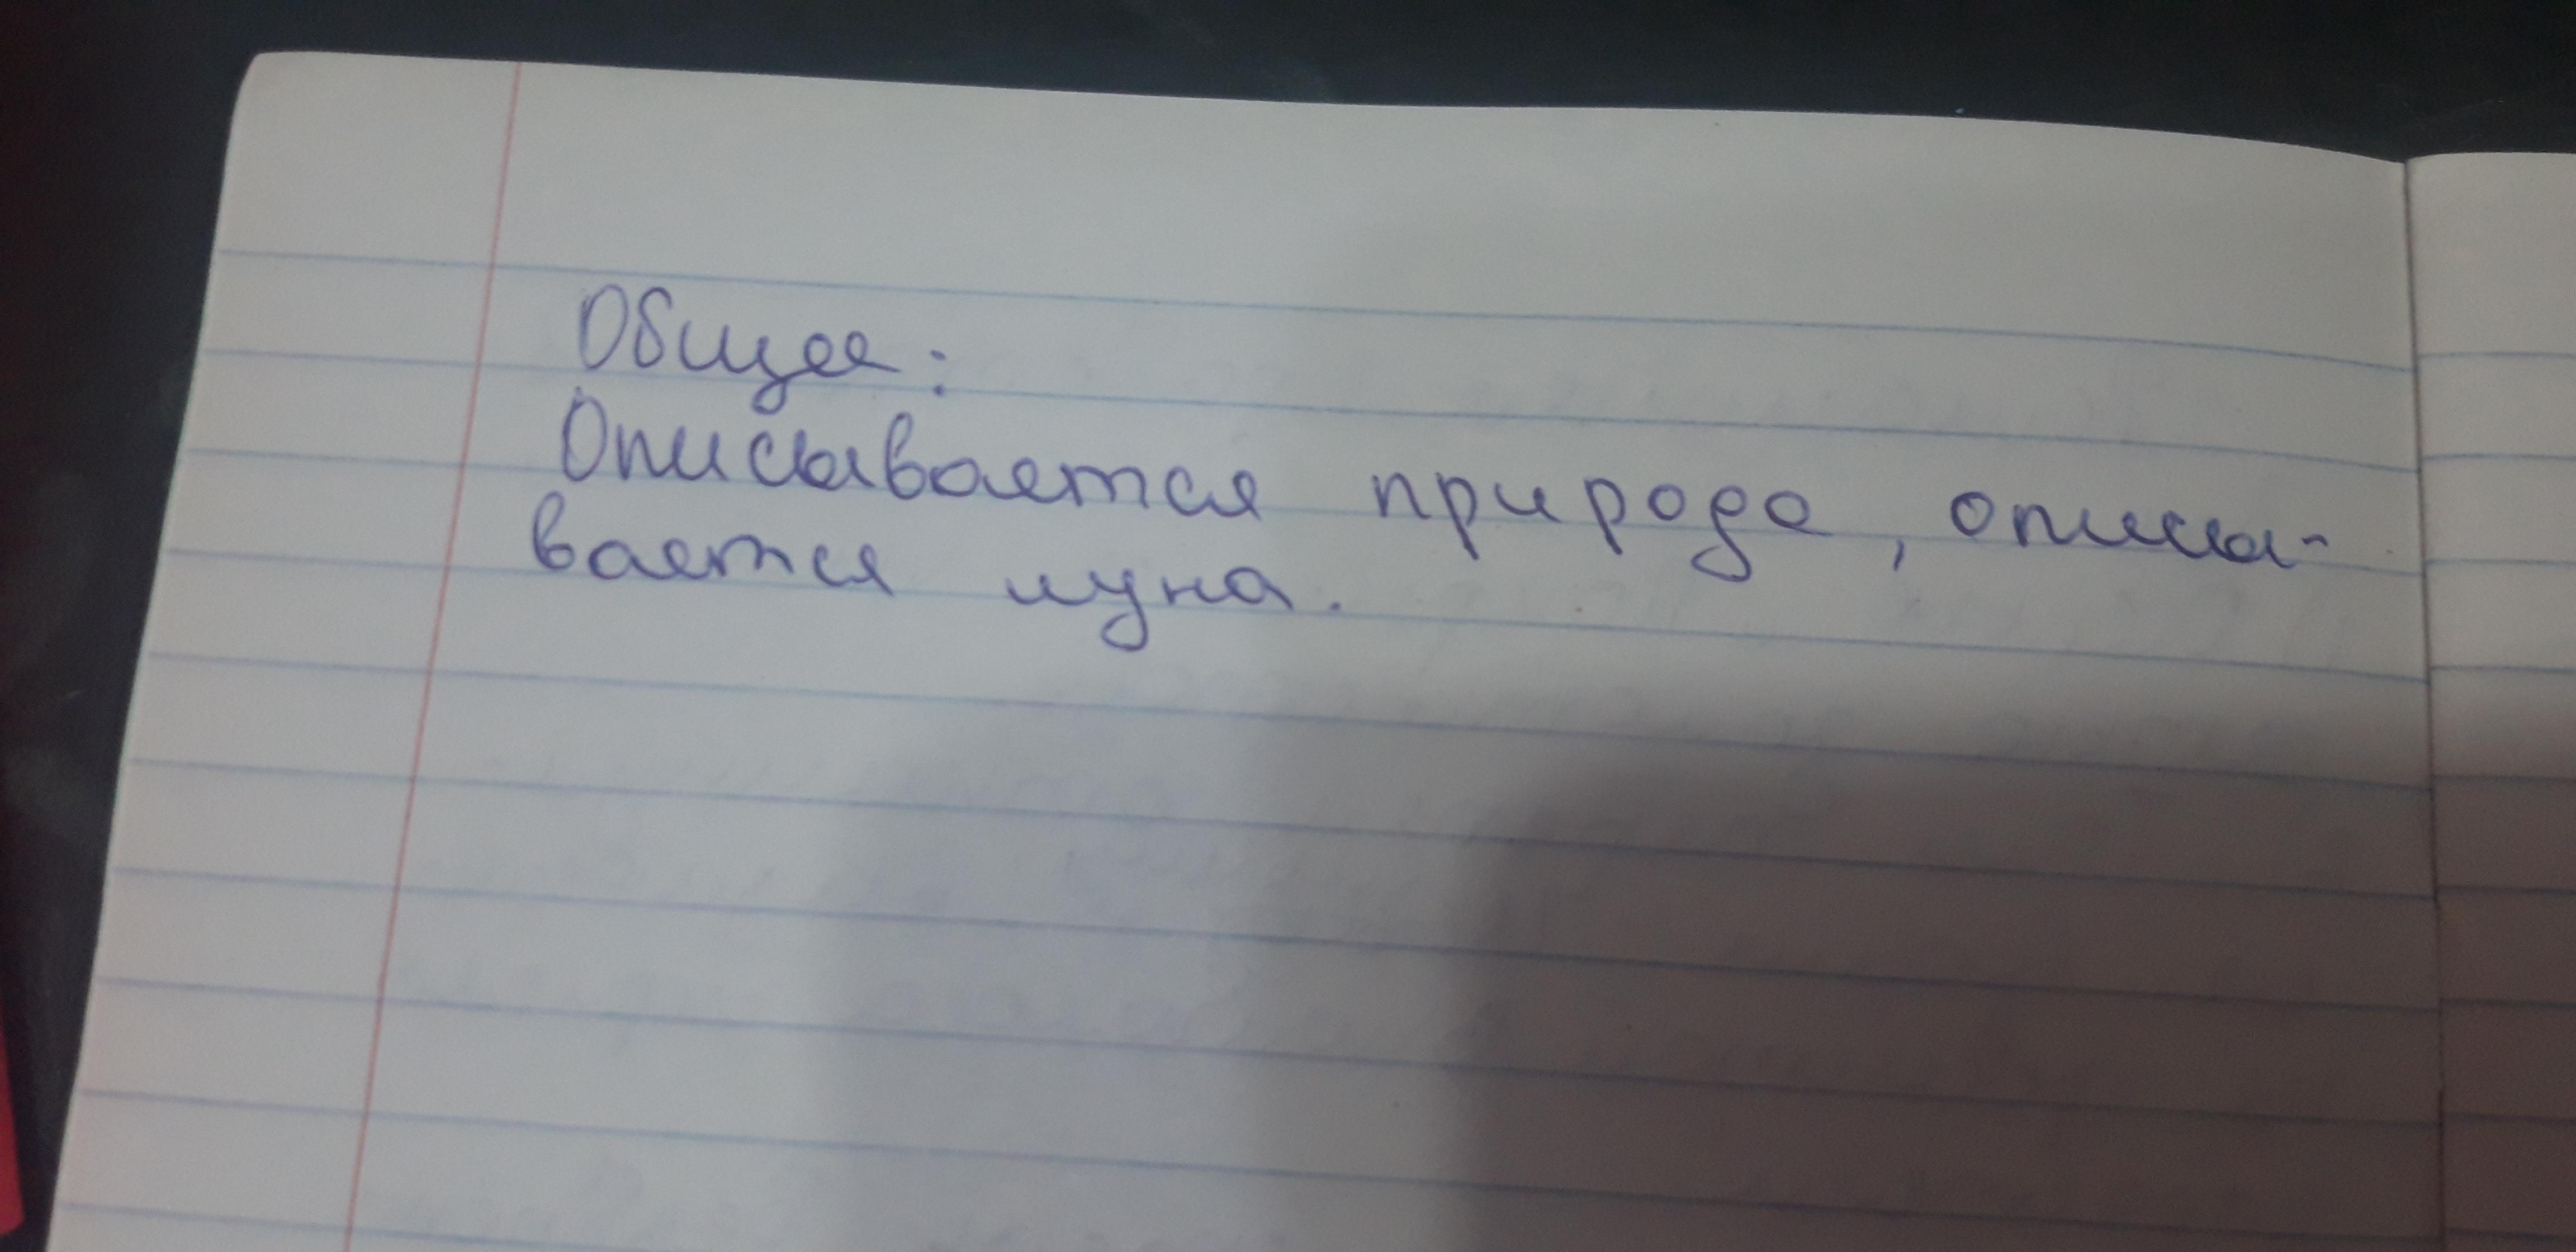 Общее:
Описывается природа, описы-
вается луна.